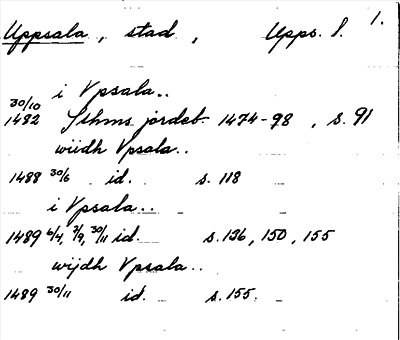 Uppsala, stad, Upps. l. 1.
i Vpsala..
30/10
1482 Sthms jordeb. 1474-98, s. 91
wiidh Vpsala..
1488 30/6 id. s. 118
i Vpsala..
1489 6/4, 7/9, 30/11 id. s. 136, 150, 155
wijdh Vpsala..
1489 30/11 id. s. 155.